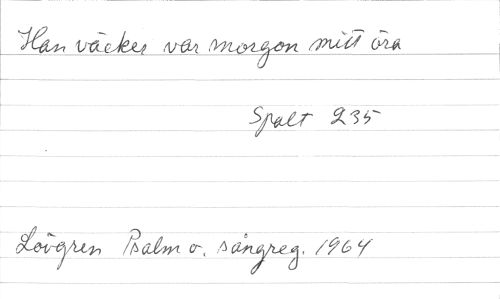 Han väcker var morgon mitt öra
Spalt 235
Lövgren Psalm o. sångreg. 1964